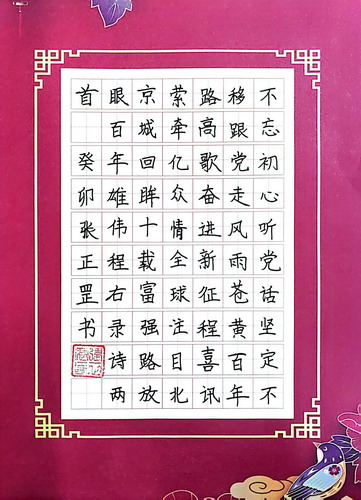 不忘初心听党话坚定不
移跟党走风雨苍黄百年
路高歌奋进新征程喜讯
萦牵亿众情全球注目北
京城回眸十载富强路放
眼百年雄伟程右录诗两
首 癸卯张正罡书